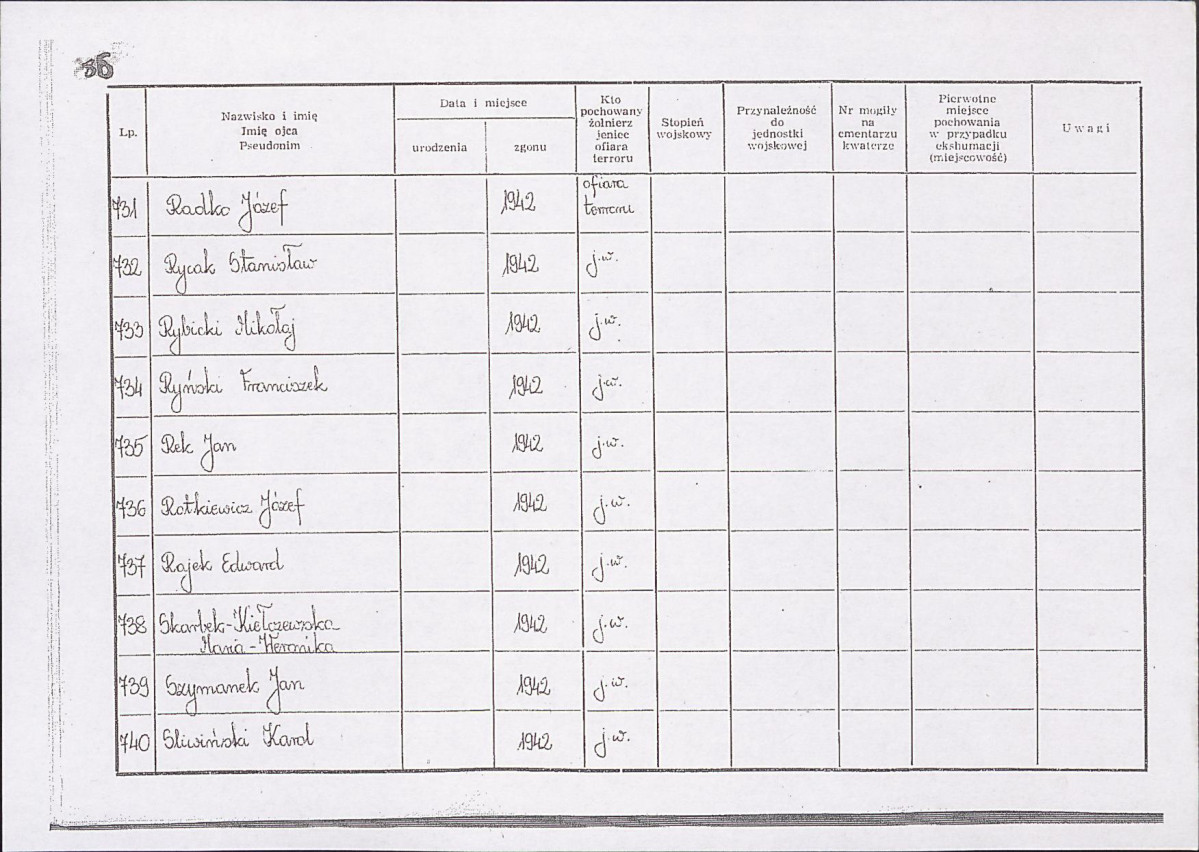 36
Lp.
Nazwisko i imię
Imię ojca
Pseudonim
Data i miejsce
urodzenia
zgonu
Kto
pochowany
żołnierz
jeniec
ofiara
terroru
Stopień
wojskowy
Przynależność
do
jednostki
wojskowej
Nr mogiły
na
cmentarzu
kwaterze
Pierwotne
miejsce
pochowania
w przypadku
ekshumacji
(miejscowość)
Uwagi
731 Radko Józef 1942 ofiara terroru
732 Rycak Stanisław 1942 j.w.
733 Rybicki Mikołaj 1942 j.w.
734 Ryński Franciszek 1942 j.w.
735 Rek Jan 1942 j.w.
736 Rotkiewicz Józef 1942 j.w.
737 Rajek Edward 1942 j.w.
738 Skarbek-Kiełczewska 1942 j.w.
Maria-Weronika
739 Szymanek Jan 1942 j.w.
740 Sliwiński Karol 1942 j.w.